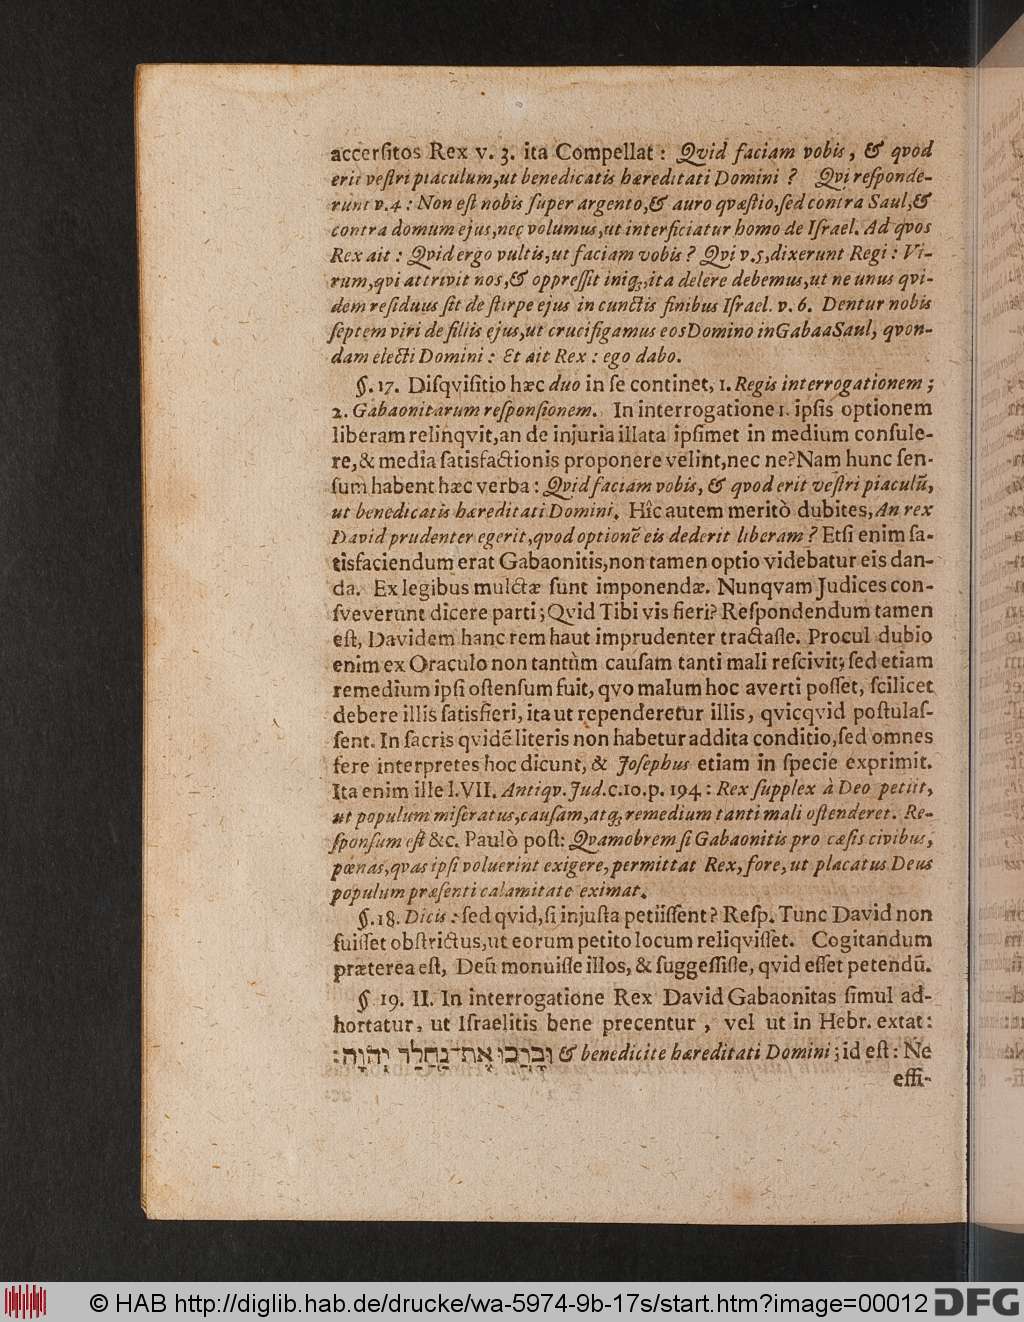 accerſitos Rex v. 3. ita Compellat: Qvid faciam vobis, & qvod
erit veſtri piaculum, ut benedicatis hæreditati Domini? Qvi reſponde-
runt v. 4: Non eſt nobis ſuper argento, & auro qvæſtio, ſed contra Saul, &
contra domum ejus, nec volumus, ut interficiatur homo de Iſrael. Ad qvos
Rex ait: Qvid ergo vultis, ut faciam vobis? Qvi v. 5, dixerunt Regi: Vi-
rum, qvi attrivit nos, & oppreſſit iniq;, ita delere debemus, ut ne unus qvi-
dem reſiduus ſit de ſtirpe ejus in cunctis finibus Iſrael. v. 6. Dentur nobis
ſeptem viri de filiis ejus, ut crucifigamus eos Domino in Gabaa Saul, qvon-
dam electi Domini: Et ait Rex: ego dabo.
§. 17. Diſqviſitio hæc duo in ſe continet, 1. Regis interrogationem;
2. Gabaonitarum reſponſionem. In interrogatione 1. ipſis optionem
liberam relinqvit, an de injuria illata ipſimet in medium conſule-
re, & media ſatisfactionis proponere velint, nec ne? Nam hunc ſen-
ſum habent hæc verba: Qvid faciam vobis, & qvod erit veſtri piaculū,
ut benedicatis hæreditati Domini. Hîc autem meritò dubites, An rex
David prudenter egerit, qvod optionē eis dederit liberam? Etſi enim ſa-
tisfaciendum erat Gabaonitis, non tamen optio videbatur eis dan-
da. Ex legibus mulctæ ſunt imponendæ. Nunqvam Judices con-
ſveverunt dicere parti; Qvid Tibi vis fieri? Reſpondendum tamen
eſt, Davidem hanc rem haut imprudenter tractaſſe. Procul dubio
enim ex Oraculo non tantùm cauſam tanti mali reſcivit; ſed etiam
remedium ipſi oſtenſum fuit, qvo malum hoc averti poſſet, ſcilicet
debere illis ſatisfieri, ita ut rependeretur illis, qvicqvid poſtulaſ-
ſent. In ſacris qvidē literis non habetur addita conditio, ſed omnes
fere interpretes hoc dicunt, & Joſephus etiam in ſpecie exprimit.
Ita enim ille l. VII. Antiqv. Jud. c. 10. p. 194: Rex ſupplex à Deo petiit,
ut populum miſeratus, cauſam, atq; remedium tanti mali oſtenderet. Re-
ſponſum eſt &c. Paulò poſt: Qvamobrem ſi Gabaonitis pro cæſis civibus,
pœnas, qvas ipſi voluerint exigere, permittat Rex, fore, ut placatus Deus
populum præſenti calamitate eximat.
§. 18. Dicis: ſed qvid, ſi injuſta petiiſſent? Reſp. Tunc David non
fuiſſet obſtrictus, ut eorum petito locum reliqviſſet. Cogitandum
præterea eſt, Deū monuiſſe illos, & ſuggeſſiſſe, qvid eſſet petendū.
§. 19. II. In interrogatione Rex David Gabaonitas ſimul ad-
hortatur, ut Iſraelitis bene precentur, vel ut in Hebr. extat:
וּבָרֲכוּ אֶת־נַחֲלַת יְהֹוָה׃ & benedicite hæreditati Domini; id eſt: Ne
effi-
© HAB http://diglib.hab.de/drucke/wa-5974-9b-17s/start.htm?image=00012 DFG